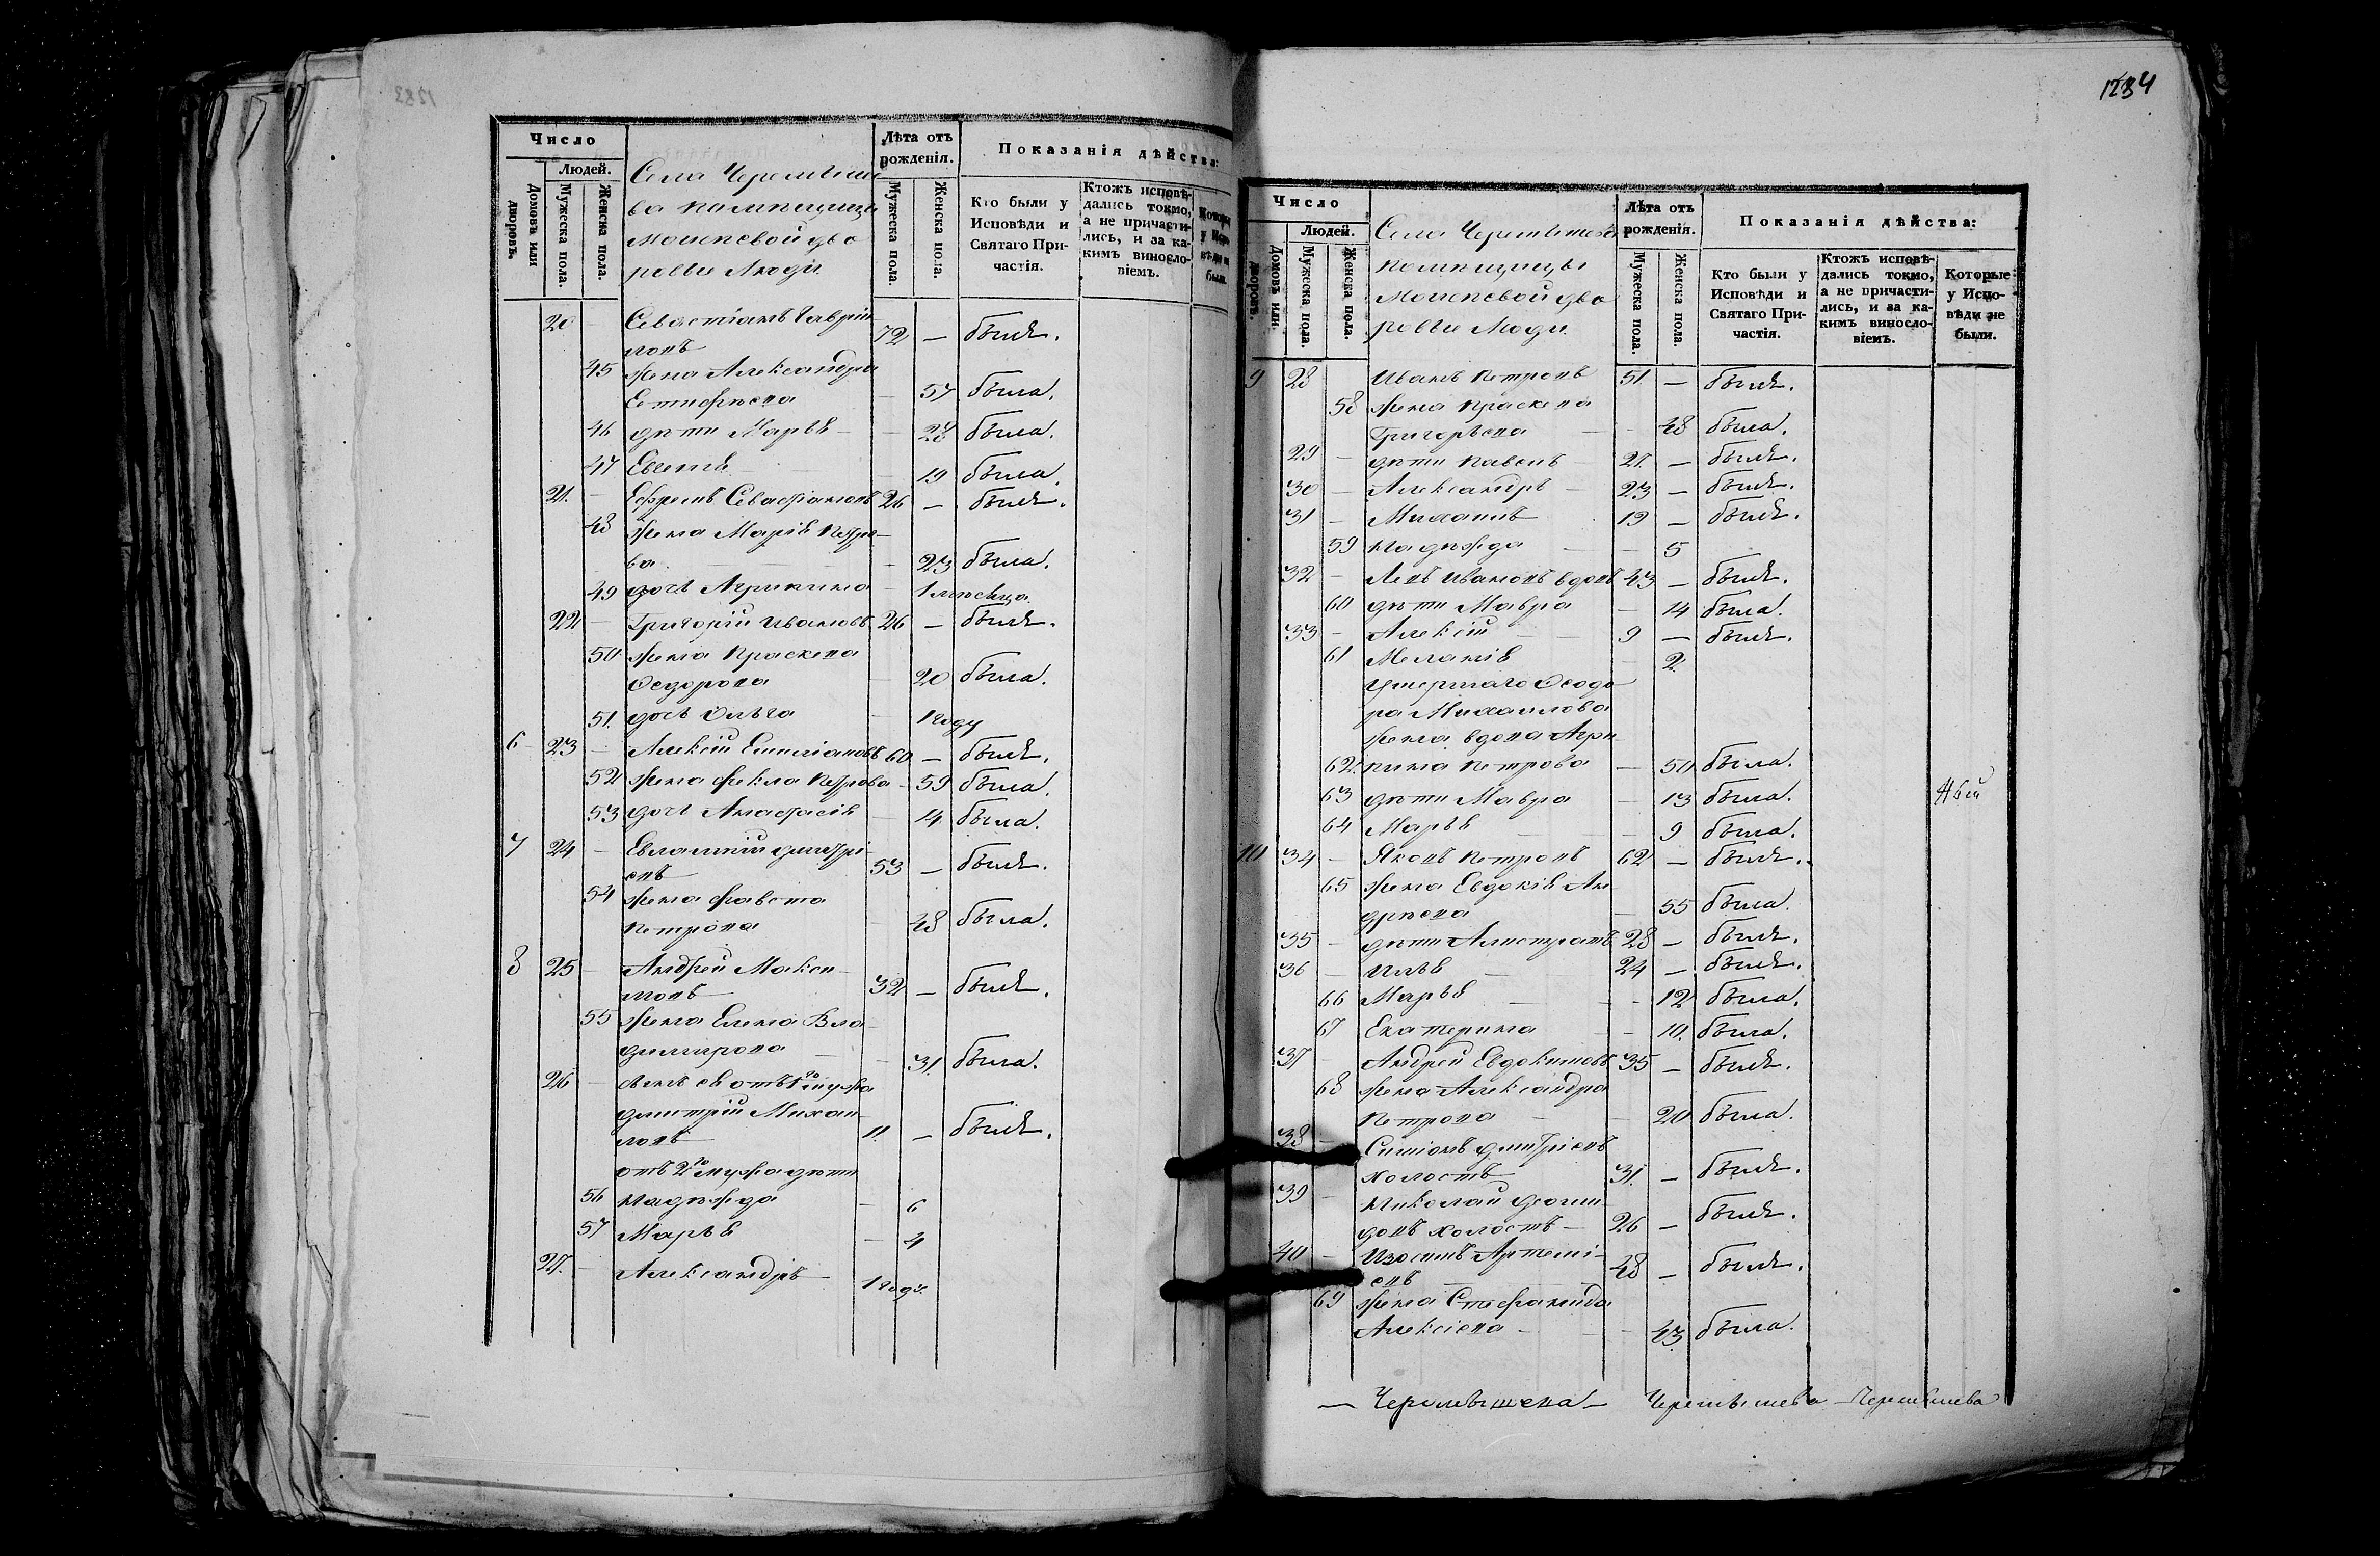 1284
Число
Людей.
Домовъ или дворовъ.
Мужеска пола.
Женска пола.
Лѣта отъ рожденія.
Мужеска пола.
Женска пола.
Показанія дѣйства:
Кто были у Исповѣди и Святаго Причастія.
Ктожъ исповѣдались токмо, а не причастились, и за какимъ винословіемъ.
Села Черемыше
ва помещицы
дво
ровые люди
20 — Севастіанъ Гаврии
ловъ 72 — былъ.
45 жена Александра
— 57 была.
46 дѣти Марья — 28 была.
47 — 19 была.
21. — Ефремъ Севастіановъ 26 — былъ.
48 жена Марія Петро
ва — 23 была.
49 дочь Агрипина — 1 мѣсяца.
22 — Григорій Ивановъ 26 — былъ.
50 жена Праскева
Феодорова — 20 была.
51. дочь Ольга — 1 году
6 23 — Алексій Емиліановъ 60 — былъ.
52 жена Фекла Петрова — 59 была.
53 дочь Анастасія — 4 была.
7 24 — Евлампій Дмитрі
евъ 53 — былъ.
54 жена Фавста
Петрова — 48 была.
8 25 — Андрей Макси
мовъ 32 — былъ.
55 жена Елена Вла
димирова — 31. была.
26 — сынъ ея отъ 1го мужа
Дмитрій Михаи
ловъ 11. — былъ.
отъ 2го мужа дѣти
56 Надѣжда — 6
57 Марья — 4
27. — Александръ — 1 году.
Число
Людей.
Домовъ или дворовъ.
Мужеска пола.
Женска пола.
Лѣта отъ рожденія.
Мужеска пола.
Женска пола.
Показанія дѣйства:
Кто были у Исповѣди и Святаго Причастія.
Ктожъ исповѣдались токмо, а не причастились, и за какимъ винословіемъ.
Которые у Исповѣди не были.
Села Черемышева
помещицы
дво
ровые люди.
9 28 Иванъ Петровъ 51. — былъ.
58 жена Праскева
Григорьева — 48 была.
29 — дѣти Павелъ — 27. — былъ.
30 — Александръ — 23 — былъ.
31 — Михаилъ 19 — былъ.
59 Надѣжда — 5
32 — Левъ Ивановъ вдовъ 43 — былъ.
60 дѣти Мавра — 14 была.
33 — Алексій — 9 — былъ.
61 Меланія — 2.
умершаго Феодо
ра Михаилова
жена вдова Агри
62. пина Петрова — 50 была.
63 дѣти Мавра — 13 была.
64 Марья — 9 была.
10 34 — Яковъ Петровъ 62 — былъ.
65 жена Евдокія Ан
дрѣева — 55 была.
35 — дѣти Алистратъ 28 — былъ.
36 — Илья — 24 — былъ.
66 Марья — 12 была.
67 Екатерина — 10. была.
37 — Андрей Евдокимовъ 35 — былъ.
68 жена Александра
Петрова — 20 была.
38 — Симіонъ Дмитріевъ
холостъ 31. — былъ.
39 — Николай
довъ холостъ — 26 — былъ.
40 — Изосимъ Артемі
евъ 48 — былъ.
69 жена Стефанида
Алексіева — 43 была.
— Черемышева — Черемышева — Черемышева